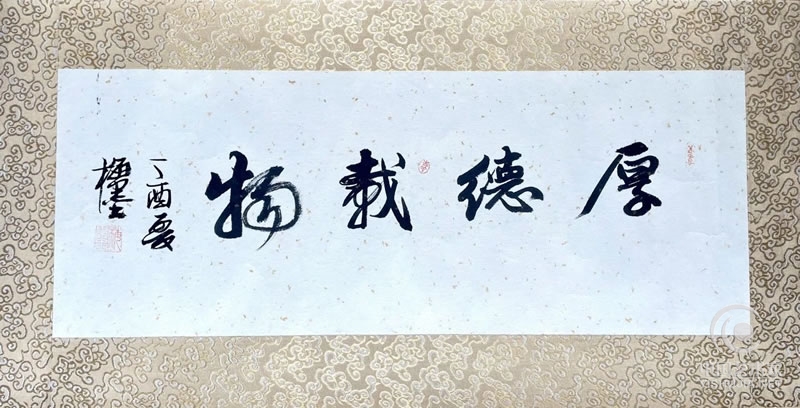 厚德載物
丁酉夏